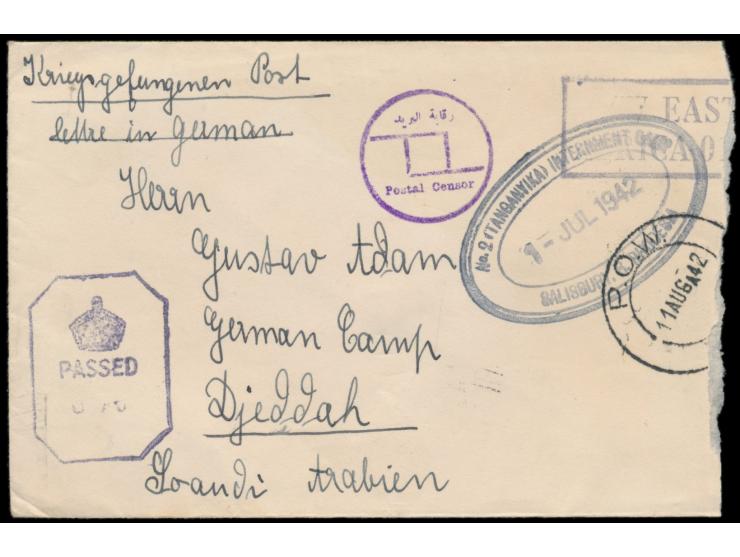 Kriegsgefangenen Post
lettre in German
Herrn
Gustav Adam
German Camp
Djeddah
Soaudi Arabien
رقابة البريد
Postal Censor
EAST
No. 2 (TANGANYIKA) INTERNMENT CAMP
1 - JUL 1942
SALISBURY
P.O.W.
11 AUG 42
PASSED